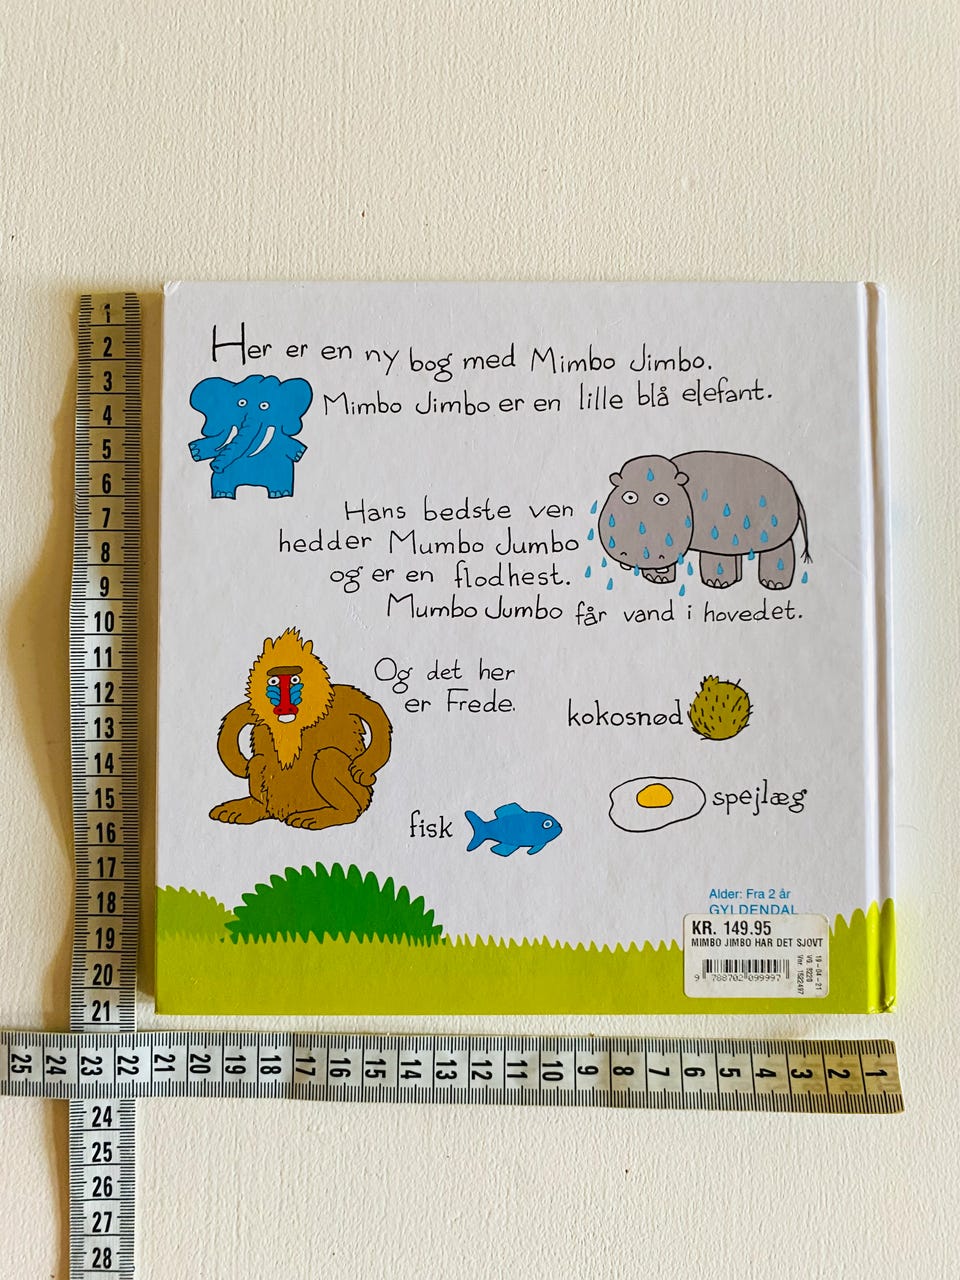 Her er en ny bog med Mimbo Jimbo.
Mimbo Jimbo er en lille blå elefant.
Hans bedste ven
hedder Mumbo Jumbo
og er en flodhest.
Mumbo Jumbo får vand i hovedet.
Og det her
er Frede.
kokosnød
spejlæg
fisk
Alder: Fra 2 år
GYLDENDAL
KR. 149.95
MIMBO JIMBO HAR DET SJOVT
9 788702 099997
19-04-21
VG 5220
Var 1522497
1
2
3
4
5
6
7
8
9
10
11
12
13
14
15
16
17
18
19
20
21
25 24 23 22 21 20 19 18 17 16 15 14 13 12 11 10 9 8 7 6 5 4 3 2 1
24
25
26
27
28